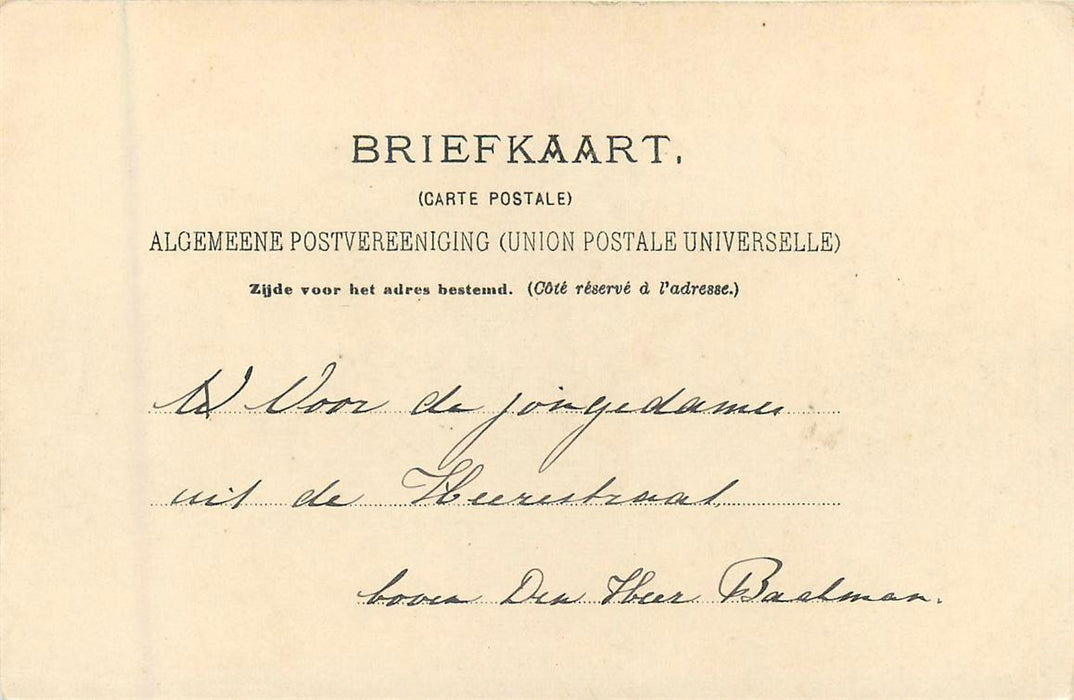 BRIEFKAART.
(CARTE POSTALE)
ALGEMEENE POSTVEREENIGING (UNION POSTALE UNIVERSELLE)
Zijde voor het adres bestemd. (Côté réservé à l'adresse.)
Voor de jongedames
uit de Heerestraat
boven Den Heer